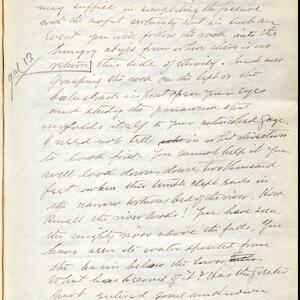 may suffice in completing the picture
with the awful certainty that in such an
event you will follow the rock into the
hungry abyss from which there is no
gal 13
return this side of eternity. And now
grasping the rock on the left or the
balustrade in front open your eyes
and study the panorama that
unfolds itself to your astonished gaze.
I need not tell in what direction
to look first. You cannot help it you
will look down, down two thousand
feet when this terrible cleft ends in
the narrow tortuous bed of the river. How
small the river looks! You have seen
the mighty river above the falls. You
have seen its water
the basin below the lower
What has become of it? Has the greater
part entered some unknown